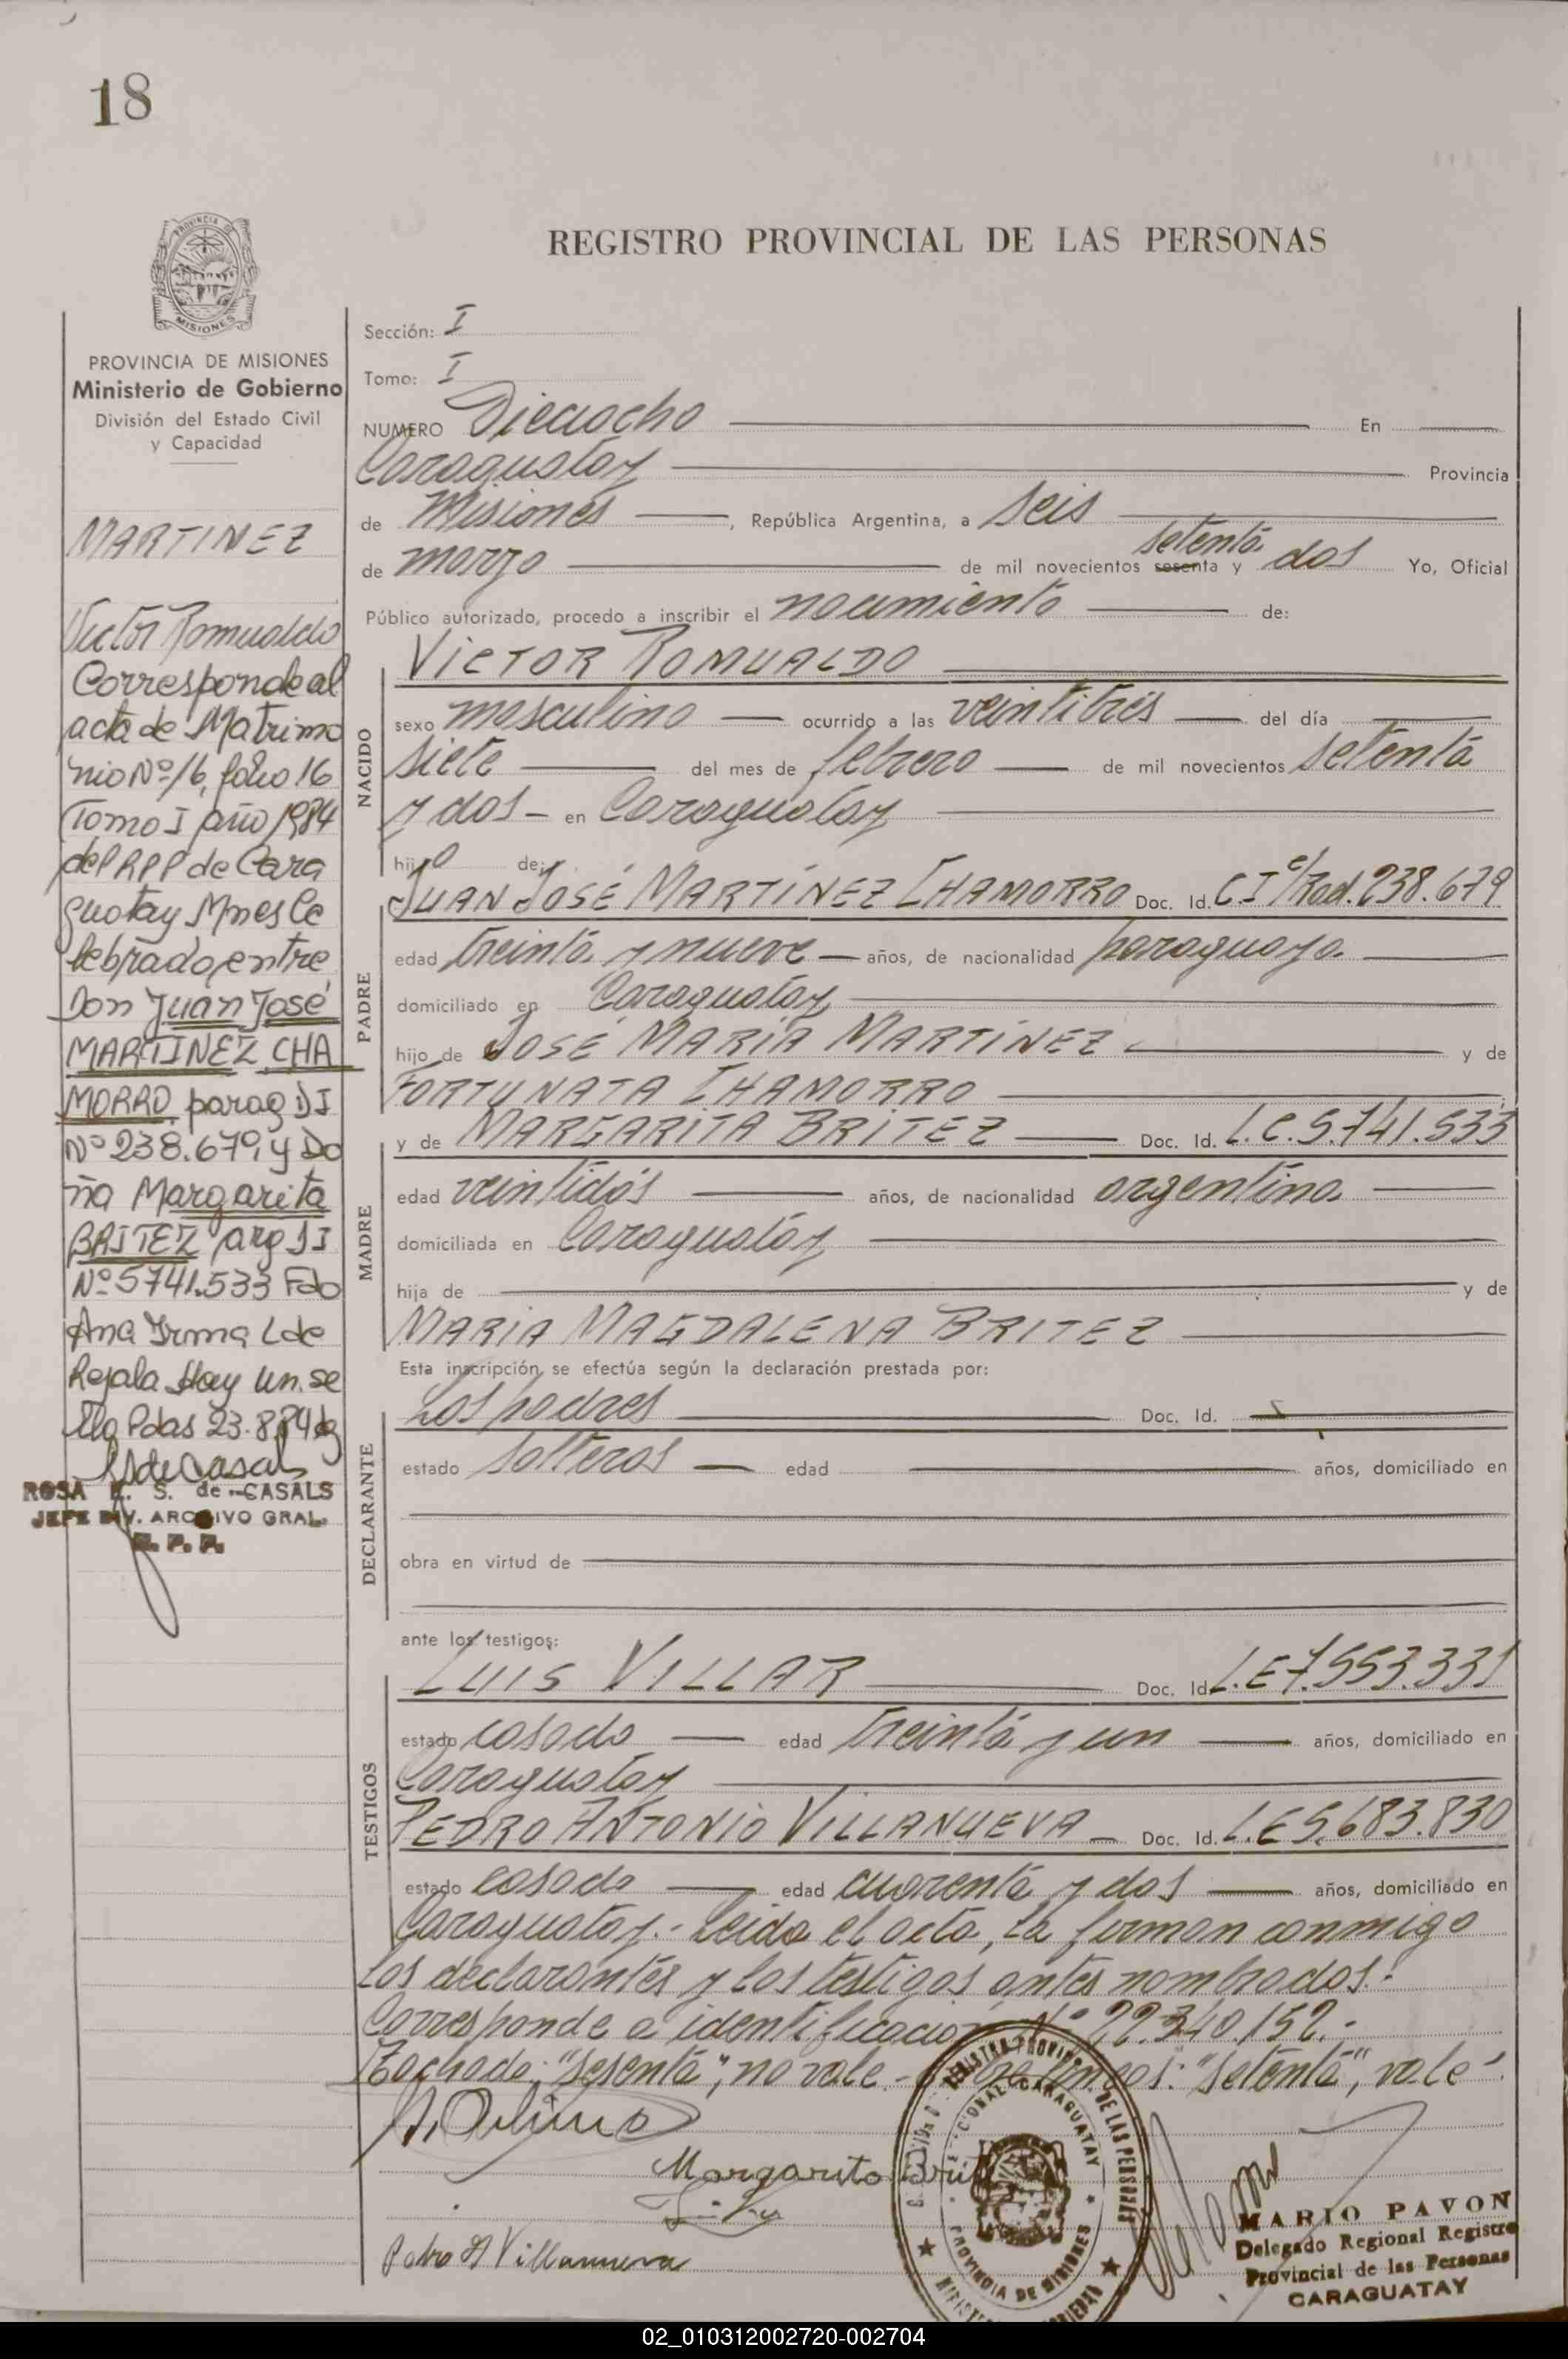 18
REGISTRO PROVINCIAL DE LAS PERSONAS
PROVINCIA DE MISIONES
Ministerio de Gobierno
División del Estado Civil
y Capacidad
MARTINEZ
Victor Romualdo
Corresponde al
acta de Matrimo
nio Nº 16, folio 16
Tomo I año 1984
del RPP de Cara
guatay Mnes Ce
lebrado entre
Don Juan José
MARTINEZ CHA
MORRO parag DI
Nº 238.679, y Do
ña Margarita
BRITEZ arg DI
Nº 5741.533 Fdo
Ana Irma L de
Rejala Hay un se
llo Pdas 23.8.84
ROSA E. S. de CASALS
JEFE DIV. ARCHIVO GRAL.
R. P. P.
Sección: I
Tomo: I
NUMERO Dieciocho En
Caraguatay Provincia
de Misiones, República Argentina, a seis
setenta
de marzo de mil novecientos sesenta y dos Yo, Oficial
Público autorizado, procedo a inscribir el nacimiento de:
NACIDO
VICTOR ROMUALDO
sexo masculino ocurrido a las veintitrés del día
siete del mes de febrero de mil novecientos setenta
y dos en Caraguatay
hijo de:
PADRE
JUAN JOSÉ MARTÍNEZ CHAMORRO Doc. Id. C I c/Rad. 238.679
edad treinta y nueve años, de nacionalidad paraguaya
domiciliado en Caraguatay
hijo de JOSÉ MARÍA MARTÍNEZ y de
FORTUNATA CHAMORRO
MADRE
y de MARGARITA BRITEZ Doc. Id. L.C. 5.741.533
edad veintidós años, de nacionalidad argentina
domiciliada en Caraguatay
hija de y de
MARIA MAGDALENA BRITEZ
Esta inscripción, se efectúa según la declaración prestada por:
DECLARANTE
Los padres Doc. Id.
estado solteros edad años, domiciliado en
obra en virtud de
ante los testigos:
TESTIGOS
LUIS VILLAR Doc. Id. L.E 7.553.331
estado casado edad treinta y un años, domiciliado en
Caraguatay
PEDRO ANTONIO VILLANUEVA Doc. Id. L.E 5.683.830
estado casado edad cuarenta y dos años, domiciliado en
Caraguatay.- Leida el acta, la firman conmigo
los declarantes y los testigos antes nombrados.-
Corresponde a identificación Nº 22.340.152.-
Tachado: "sesenta", no vale.- "setenta", vale
Margarita Brit
Pedro A Villanueva
REGISTRO PROVINCIAL DE LAS PERSONAS
CARAGUATAY
PROVINCIA DE MISIONES
MARIO PAVON
Delegado Regional Registro
Provincial de las Personas
CARAGUATAY
02_010312002720-002704